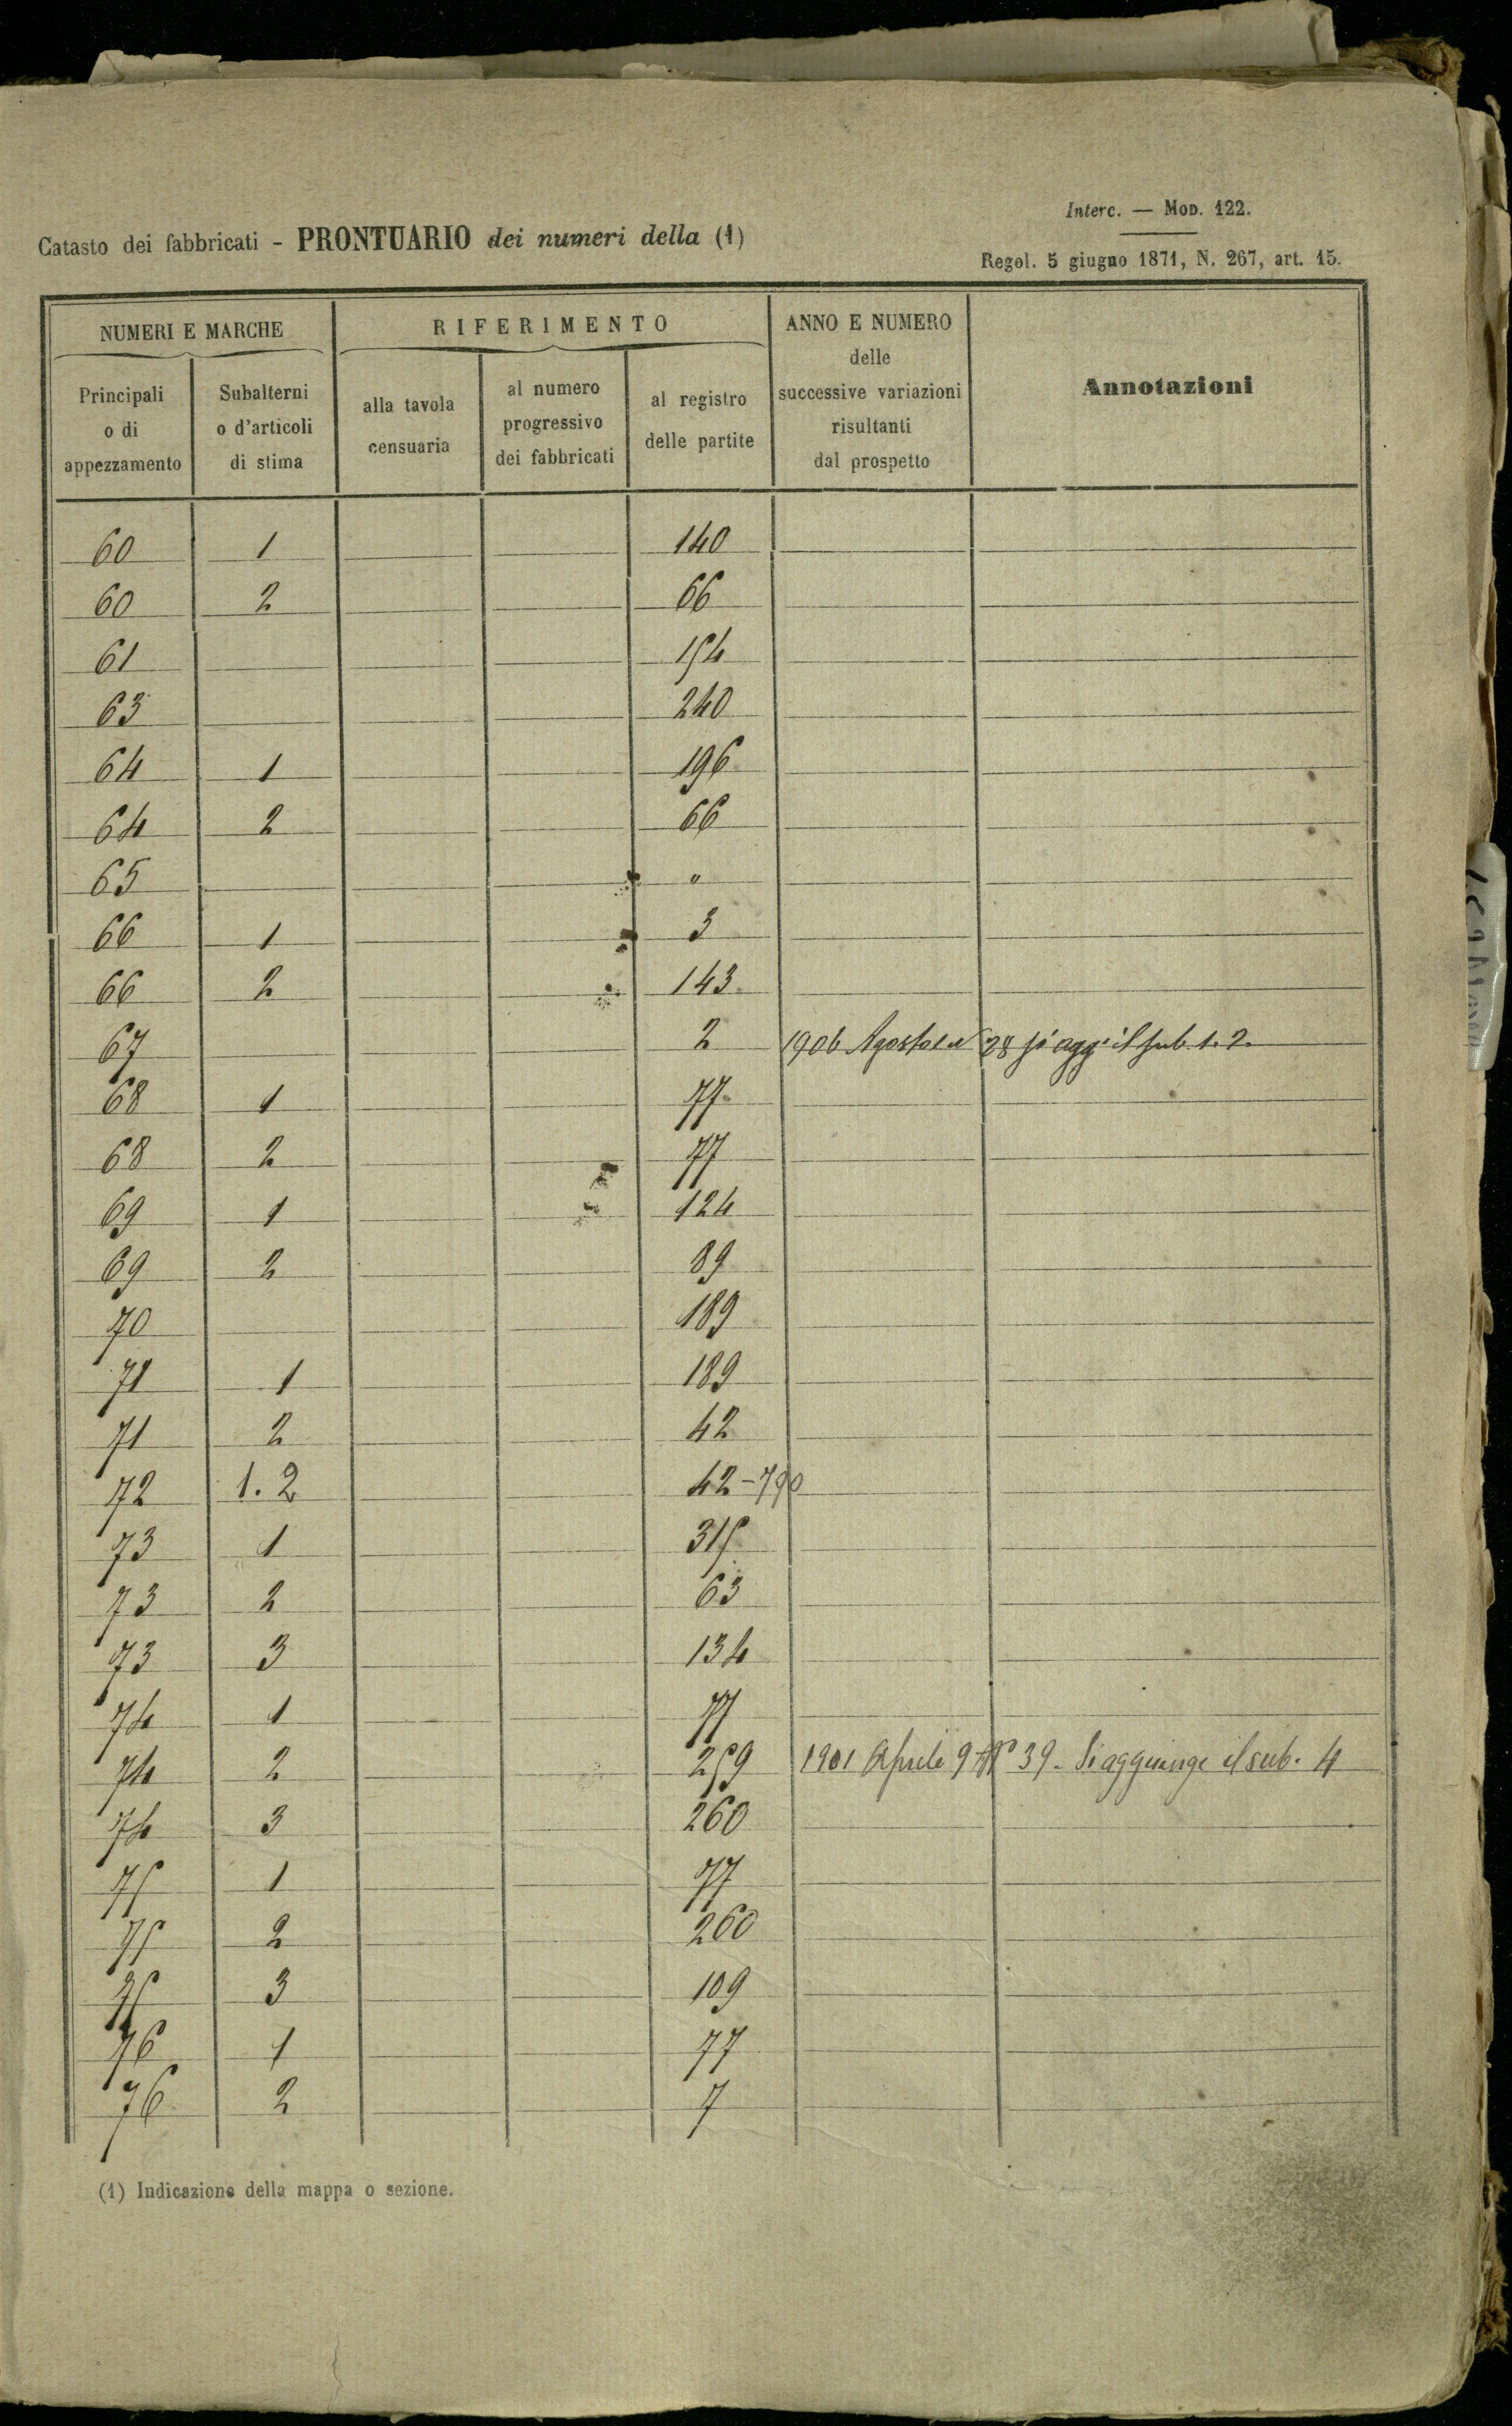 Interc. — Mod. 122.
Catasto dei fabbricati - PRONTUARIO dei numeri della (1)
Regol. 5 giugno 1871, N. 267, art. 15.
NUMERI E MARCHE
RIFERIMENTO
ANNO E NUMERO
delle
successive variazioni
risultanti
dal prospetto
Annotazioni
Principali
o di
appezzamento
Subalterni
o d'articoli
di stima
alla tavola
censuaria
al numero
progressivo
dei fabbricati
al registro
delle partite
60 1 140
60 2 66
61 154
63 240
64 1 196
64 2 66
65 "
66 1 3
66 2 143
67 2 1906 Agosto 28 si agg. il sub 1. 2.
68 1 77
68 2 77
69 1 124
69 2 89
70 189
71 1 189
71 2 42
72 1. 2 42-790
73 1 315
73 2 63
73 3 134
74 1 77
74 2 259 1901 Aprile 9 N° 39. Si aggiunge il sub. 4
74 3 260
75 1 77
75 2 260
75 3 109
76 1 77
76 2 7
(1) Indicazione della mappa o sezione.